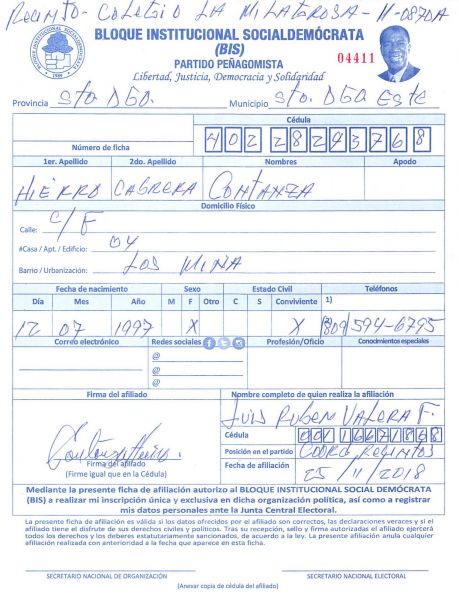 Recinto - Colegio La Milagrosa - 11-0870A
BLOQUE INSTITUCIONAL SOCIALDEMÓCRATA
(BIS)
PARTIDO PEÑAGOMISTA
Libertad, Justicia, Democracia y Solidaridad
04411
Provincia Sto Dgo. Municipio Sto. Dgo Este
Cédula
Número de ficha 402 28243768
1er. Apellido 2do. Apellido Nombres Apodo
Hierro Cabrera Contanza
Domicilio Físico
Calle: C/F
#Casa / Apt. / Edificio: 04
Barrio / Urbanización: Los Mina
Fecha de nacimiento Sexo Estado Civil Teléfonos
Día Mes Año M F Otro C S Conviviente 1)
12 07 1997 X X (809) 594-6795
Correo electrónico Redes sociales Profesión/Oficio Conocimientos especiales
@
@
@
Firma del afiliado Nombre completo de quien realiza la afiliación
Luis Ruben Valera F.
Cédula 001 1667 868
Posición en el partido Coord Recintos
Firma del afiliado
(Firme igual que en la Cédula)
Fecha de afiliación 25/11/2018
Mediante la presente ficha de afiliación autorizo al BLOQUE INSTITUCIONAL SOCIAL DEMÓCRATA
(BIS) a realizar mi inscripción única y exclusiva en dicha organización política, así como a registrar
mis datos personales ante la Junta Central Electoral.
La presente ficha de afiliación es válida si los datos ofrecidos por el afiliado son correctos, las declaraciones veraces y si el
afiliado tiene el disfrute de sus derechos civiles y políticos. Tras su recepción, sello y firma autorizadas el afiliado ejercerá
todos los derechos y los deberes estatutariamente sancionados, de acuerdo a la ley. La presente afiliación anula cualquier
afiliación realizada con anterioridad a la fecha que aparece en esta ficha.
SECRETARIO NACIONAL DE ORGANIZACIÓN SECRETARIO NACIONAL ELECTORAL
(Anexar copia de cédula del afiliado)